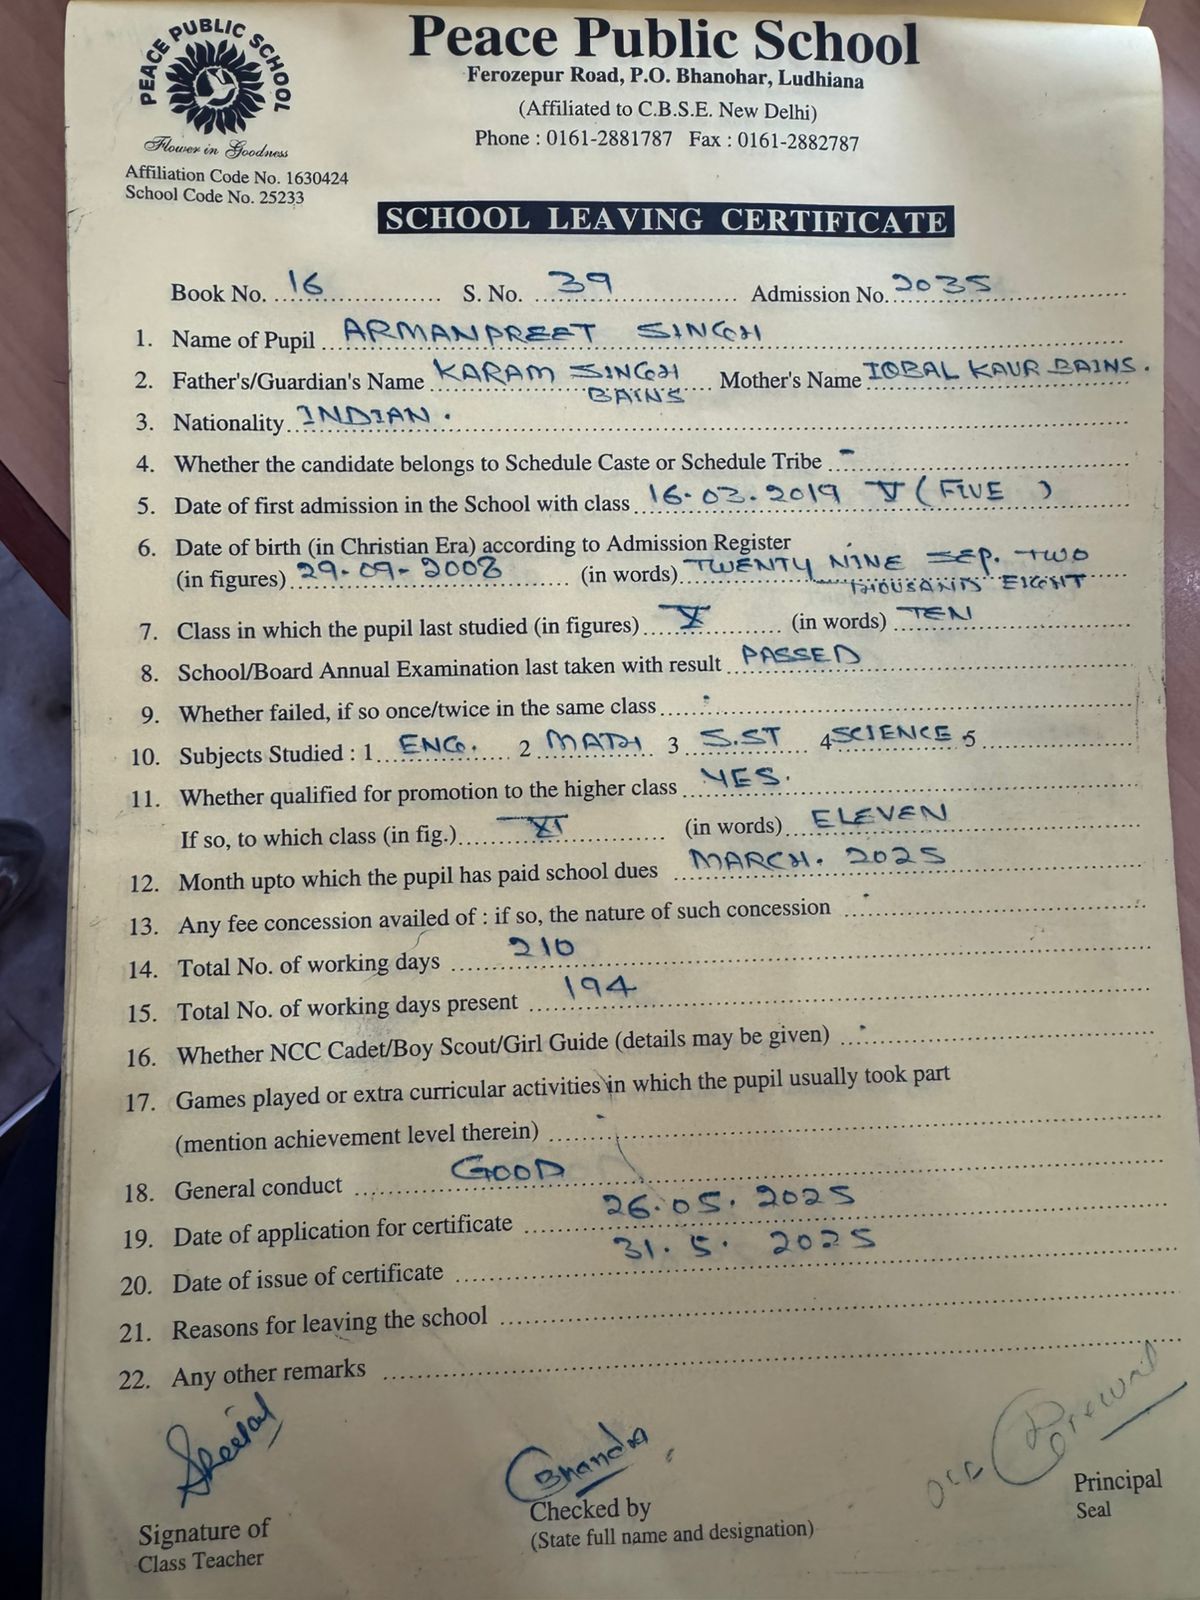 PEACE PUBLIC SCHOOL
Flower in Goodness
Affiliation Code No. 1630424
School Code No. 25233
Peace Public School
Ferozepur Road, P.O. Bhanohar, Ludhiana
(Affiliated to C.B.S.E. New Delhi)
Phone : 0161-2881787 Fax : 0161-2882787
SCHOOL LEAVING CERTIFICATE
Book No. 16 S. No. 39 Admission No. 2035
1. Name of Pupil ARMANPREET SINGH
2. Father's/Guardian's Name KARAM SINGH BAINS Mother's Name IQBAL KAUR BAINS.
3. Nationality INDIAN.
4. Whether the candidate belongs to Schedule Caste or Schedule Tribe -
5. Date of first admission in the School with class 16.03.2019 V (FIVE )
6. Date of birth (in Christian Era) according to Admission Register
(in figures) 29-09-2008 (in words) TWENTY NINE SEP. TWO THOUSAND EIGHT
7. Class in which the pupil last studied (in figures) X (in words) TEN
8. School/Board Annual Examination last taken with result PASSED
9. Whether failed, if so once/twice in the same class
10. Subjects Studied : 1 ENG. 2 MATH 3 S.ST 4 SCIENCE 5
11. Whether qualified for promotion to the higher class YES.
If so, to which class (in fig.) XI (in words) ELEVEN
12. Month upto which the pupil has paid school dues MARCH. 2025
13. Any fee concession availed of : if so, the nature of such concession
14. Total No. of working days 210
15. Total No. of working days present 194
16. Whether NCC Cadet/Boy Scout/Girl Guide (details may be given)
17. Games played or extra curricular activities in which the pupil usually took part
(mention achievement level therein)
18. General conduct GOOD
19. Date of application for certificate 26.05.2025
20. Date of issue of certificate 31.5.2025
21. Reasons for leaving the school
22. Any other remarks
Bhandra
Signature of
Class Teacher
Checked by
(State full name and designation)
Principal
Seal